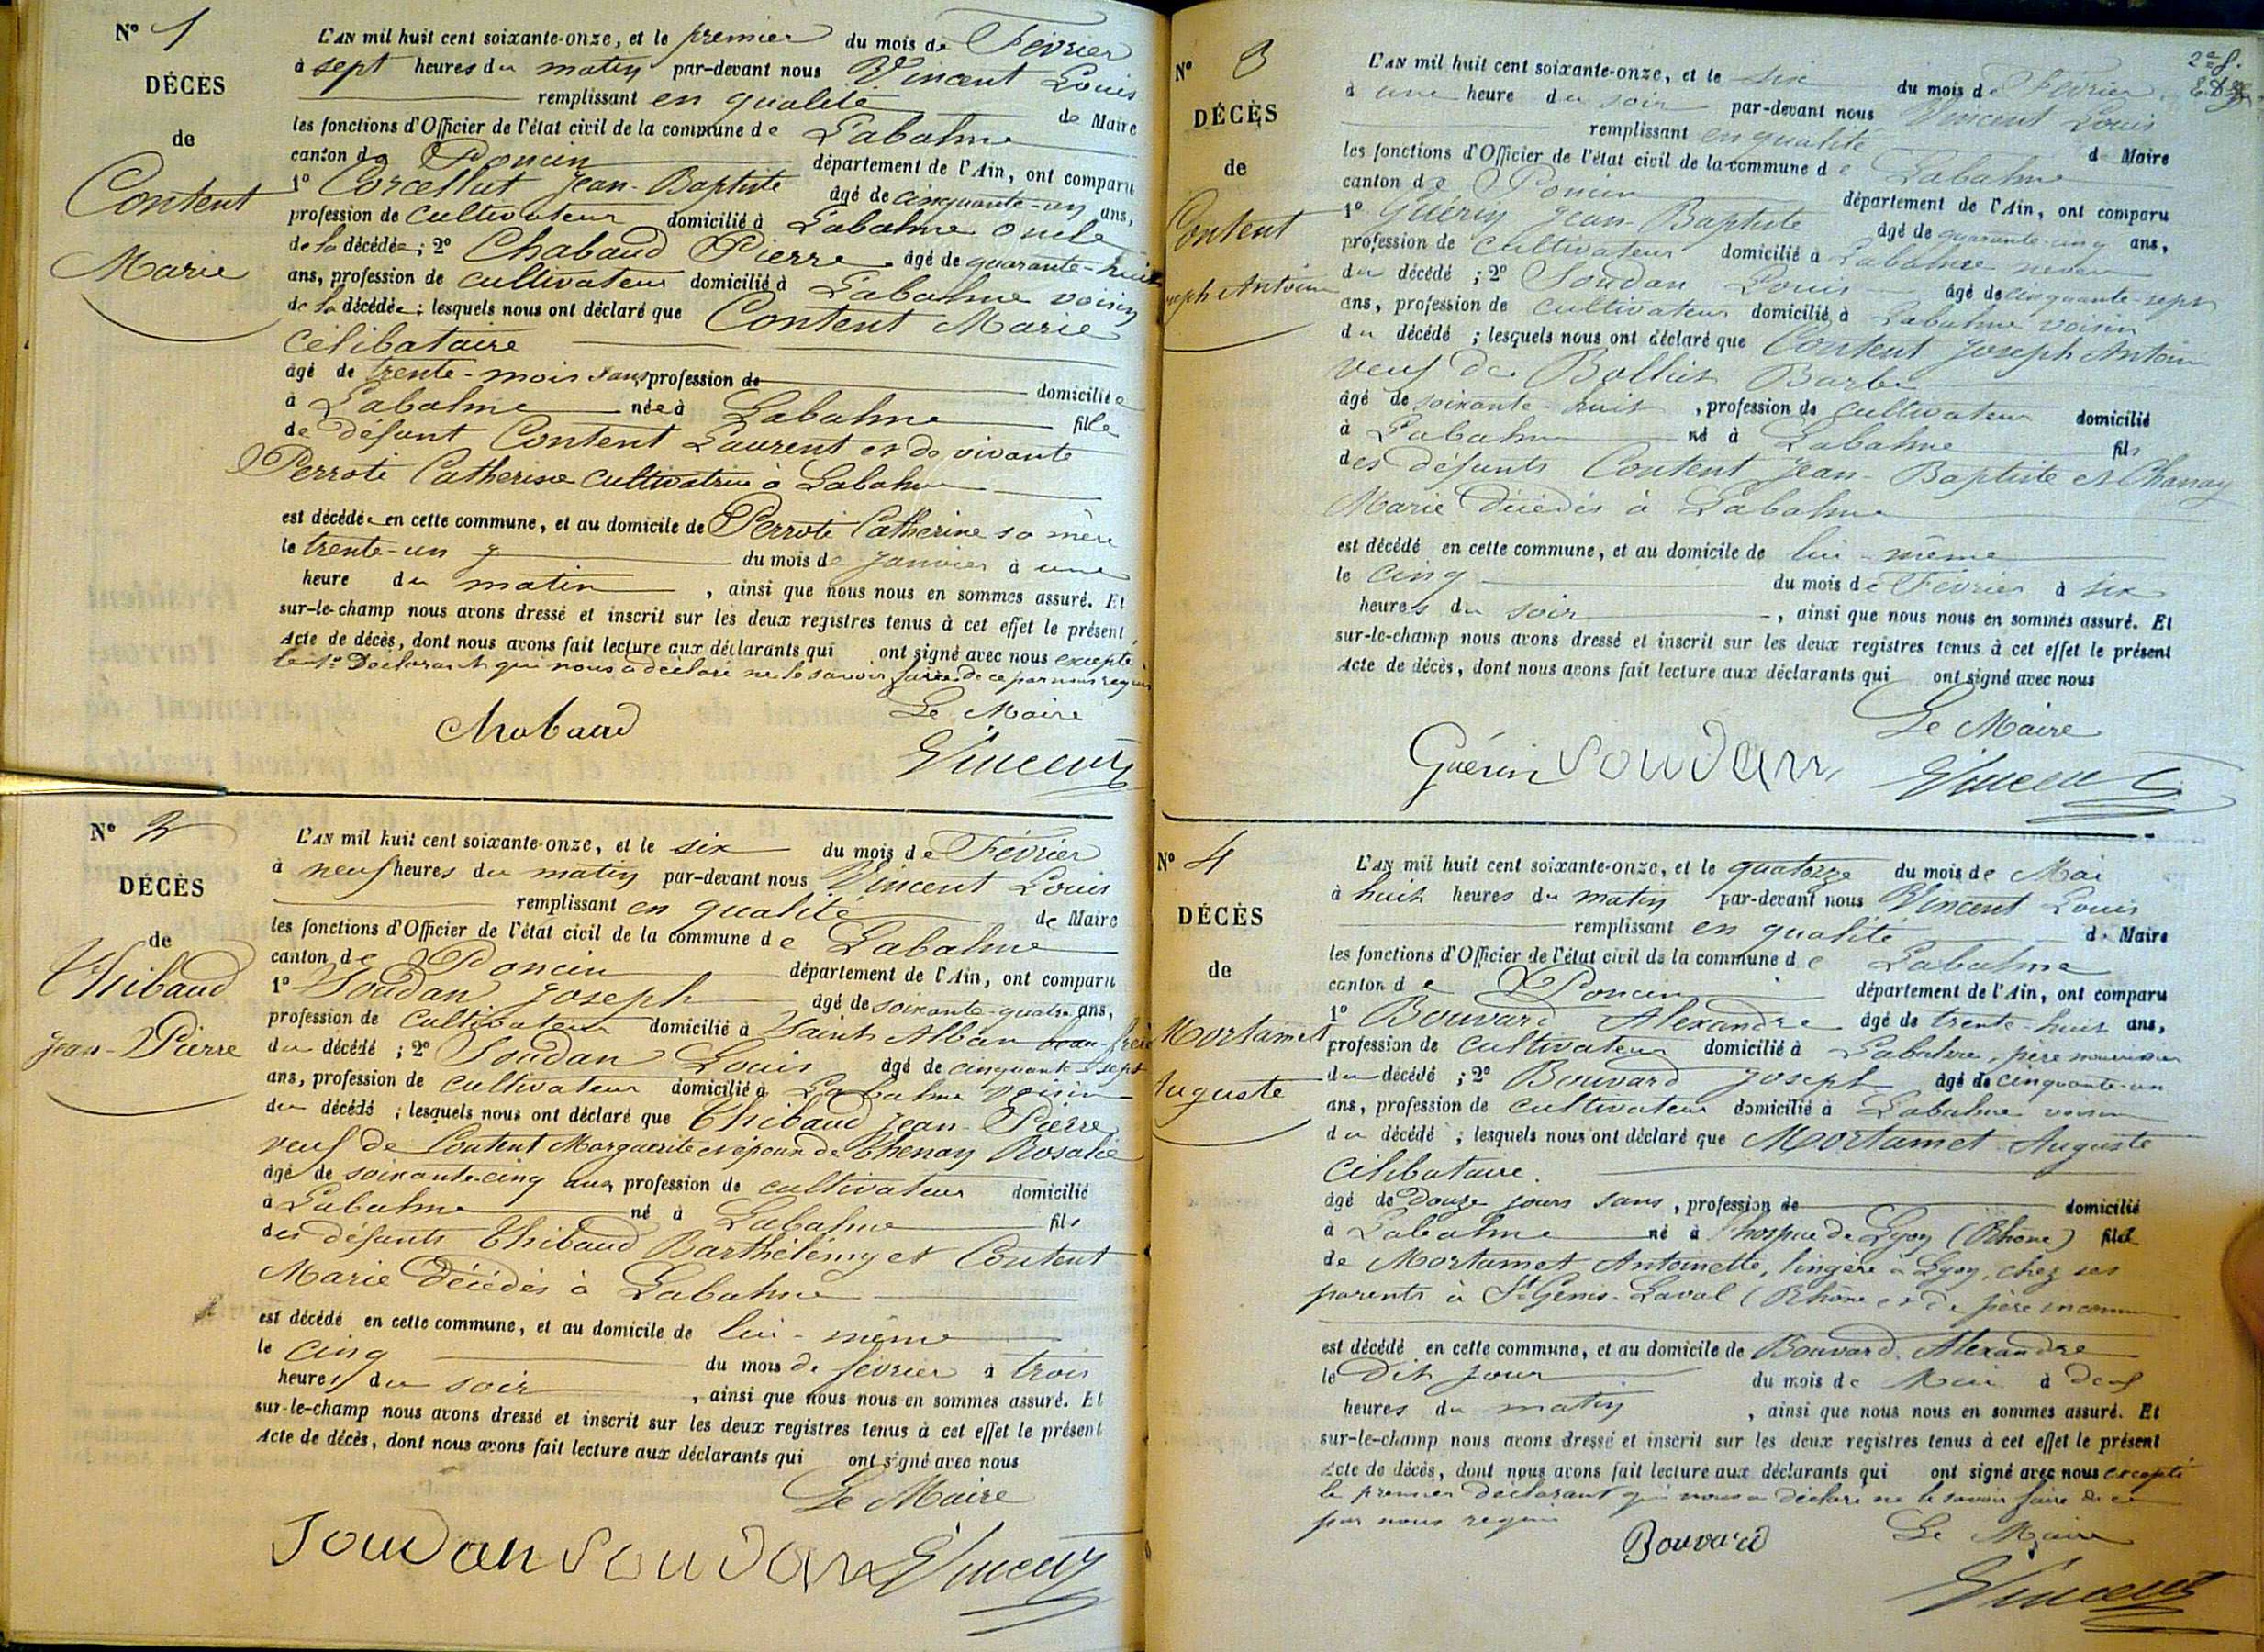 N° 1
DÉCÈS
de
Content
Marie
L'AN mil huit cent soixante-onze, et le premier du mois de Février
à sept heures du matin par-devant nous Vincent Louis
remplissant en qualité de Maire
les fonctions d'Officier de l'état civil de la commune de Labalme
canton de Poncin département de l'Ain, ont comparu
1° Corcellut Jean-Baptiste âgé de cinquante-un ans,
profession de cultivateur domicilié à Labalme oncle
de la décédée ; 2° Chabaud Pierre âgé de quarante-huit
ans, profession de cultivateur domicilié à Labalme voisin
de la décédée ; lesquels nous ont déclaré que Content Marie
célibataire
âgé de trente-mois sans profession de domiciliée
à Labalme née à Labalme fille
de défunt Content Laurent et de vivante
Perroti Catherine cultivatrice à Labalme
est décédée en cette commune, et au domicile de Perroti Catherine sa mère
le trente-un du mois de Janvier à une
heure du matin , ainsi que nous nous en sommes assuré. Et
sur-le-champ nous avons dressé et inscrit sur les deux registres tenus à cet effet le présent
Acte de décès, dont nous avons fait lecture aux déclarants qui ont signé avec nous excepté
le 1er Déclarant qui nous a déclaré ne le savoir faire de ce par nous requis
Le Maire
Chabaud Vincent
N° 2
DÉCÈS
de
Thibaud
Jean-Pierre
L'AN mil huit cent soixante-onze, et le six du mois de Février
à neuf heures du matin par-devant nous Vincent Louis
remplissant en qualité de Maire
les fonctions d'Officier de l'état civil de la commune de Labalme
canton de Poncin département de l'Ain, ont comparu
1° Soudan Joseph âgé de soixante-quatre ans,
profession de cultivateur domicilié à Saint Alban beau-frère
du décédé ; 2° Soudan Louis âgé de cinquante-sept
ans, profession de cultivateur domicilié à Labalme voisin
du décédé ; lesquels nous ont déclaré que Thibaud Jean-Pierre
veuf de Content Marguerite et époux de Chenay Rosalie
âgé de soixante-cinq ans, profession de cultivateur domicilié
à Labalme né à Labalme fils
des défunts Thibaud Barthélémy et Content
Marie Décédés à Labalme
est décédé en cette commune, et au domicile de lui-même
le cinq du mois de février à trois
heures du soir , ainsi que nous nous en sommes assuré. Et
sur-le-champ nous avons dressé et inscrit sur les deux registres tenus à cet effet le présent
Acte de décès, dont nous avons fait lecture aux déclarants qui ont signé avec nous
Le Maire
Soudan Soudan Vincent
N° 3
DÉCÈS
de
Content
seph Antoine
L'AN mil huit cent soixante-onze, et le six du mois de Février
à une heure du soir par-devant nous Vincent Louis
remplissant en qualité de Maire
les fonctions d'Officier de l'état civil de la commune de Labalme
canton de Poncin département de l'Ain, ont comparu
1° Guérin Jean-Baptiste âgé de quarante-cinq ans,
profession de cultivateur domicilié à Labalme neveu
du décédé ; 2° Soudan Louis âgé de cinquante-sept
ans, profession de cultivateur domicilié à Labalme voisin
du décédé ; lesquels nous ont déclaré que Content Joseph Antoine
veuf de Barbe
âgé de soixante-huit , profession de cultivateur domicilié
à Labalme né à Labalme fils
des défunts Content Jean-Baptiste et Chanay
Marie Décédés à Labalme
est décédé en cette commune, et au domicile de lui-même
le cinq du mois de Février à six
heures du soir , ainsi que nous nous en sommes assuré. Et
sur-le-champ nous avons dressé et inscrit sur les deux registres tenus à cet effet le présent
Acte de décès, dont nous avons fait lecture aux déclarants qui ont signé avec nous
Le Maire
Guérin Soudan Vincent
N° 4
DÉCÈS
de
Mortamet
Auguste
L'AN mil huit cent soixante-onze, et le quatorze du mois de Mai
à huit heures du matin par-devant nous Vincent Louis
remplissant en qualité de Maire
les fonctions d'Officier de l'état civil de la commune de Labalme
canton de Poncin département de l'Ain, ont comparu
1° Bouvard Alexandre âgé de trente-huit ans,
profession de cultivateur domicilié à Labalme, père nourricier
du décédé ; 2° Bouvard Joseph âgé de cinquante-un
ans, profession de cultivateur domicilié à Labalme voisin
du décédé ; lesquels nous ont déclaré que Mortamet Auguste
célibataire.
âgé de Douze jours sans , profession de domicilié
à Labalme né à l'hospice de Lyon (Rhône) fils
de Mortamet Antoinette, lingère à Lyon, chez ses
parents à St Genis-Laval (Rhône et de père inconnu
est décédé en cette commune, et au domicile de Bouvard Alexandre
le dit jour du mois de Mai à deux
heures du matin , ainsi que nous nous en sommes assuré. Et
sur-le-champ nous avons dressé et inscrit sur les deux registres tenus à cet effet le présent
Acte de décès, dont nous avons fait lecture aux déclarants qui ont signé avec nous excepté
le premier déclarant qui nous a déclaré ne le savoir faire de ce
par nous requis
Le Maire
Bouvard Vincent